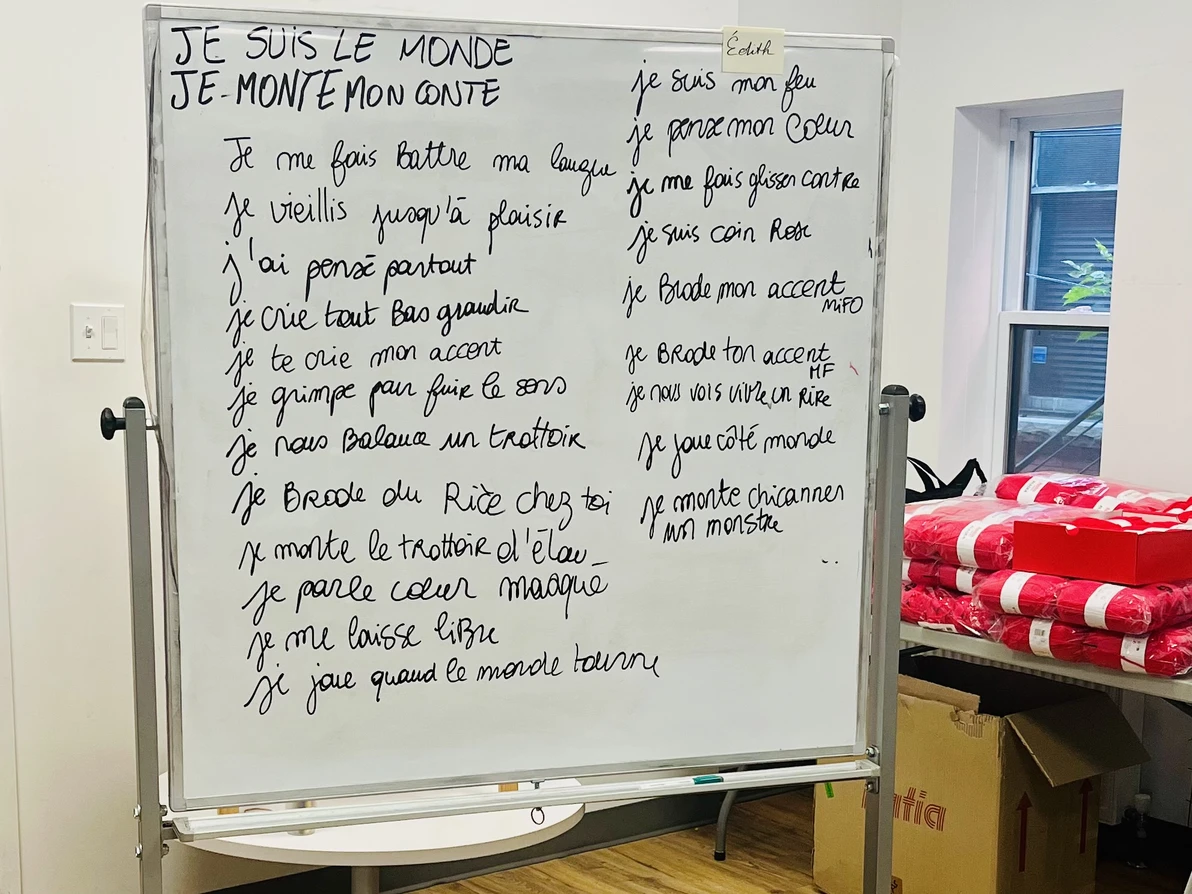 JE SUIS LE MONDE
JE-MONTE MON CONTE
Je me fais Battre ma langue
je vieillis jusqu'à plaisir
j'ai pensé partout
je crie tout Bas grandir
je te crie mon accent
je grimpe par fuir le sens
je nous Balance un trottoir
je Brode du Rire chez toi
je monte le trottoir d'élan_
je parle cœur masqué
je me laisse libre
je joue quand le monde tourne
Édith
je suis mon feu
je pense mon Cœur
je me fais glisser contre
je suis coin Rose
je Brode mon accent
MIFO
je BRode ton accent
MF
je nous vois vivre un RiRe
je joue côté monde
je monte chicanner
un monstre